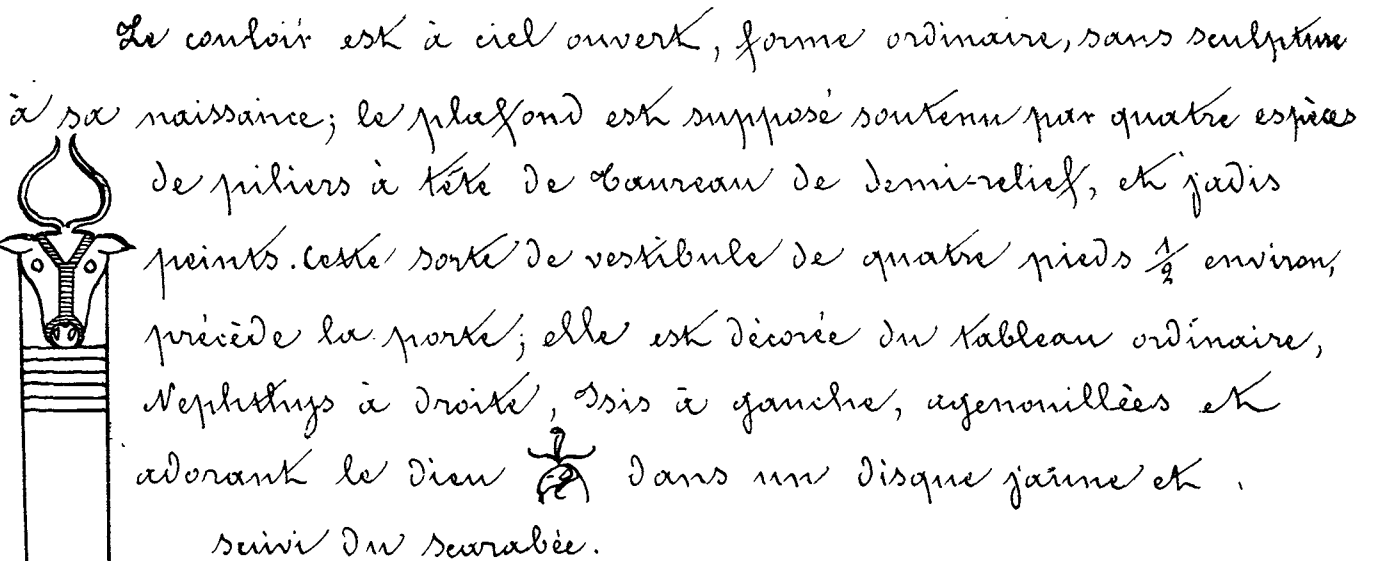 Le couloir est à ciel ouvert, forme ordinaire, sans sculpture
à sa naissance; le plafond est supposé soutenu par quatre espèces
de piliers à tête de Taureau de demi-relief, et jadis
peints. Cette sorte de vestibule de quatre pieds 1/2 environ,
précède la porte; elle est décorée du tableau ordinaire,
Nephthys à droite, Isis à gauche, agenouillées et
adorant le dieu dans un disque jaune et
suivi du scarabée.